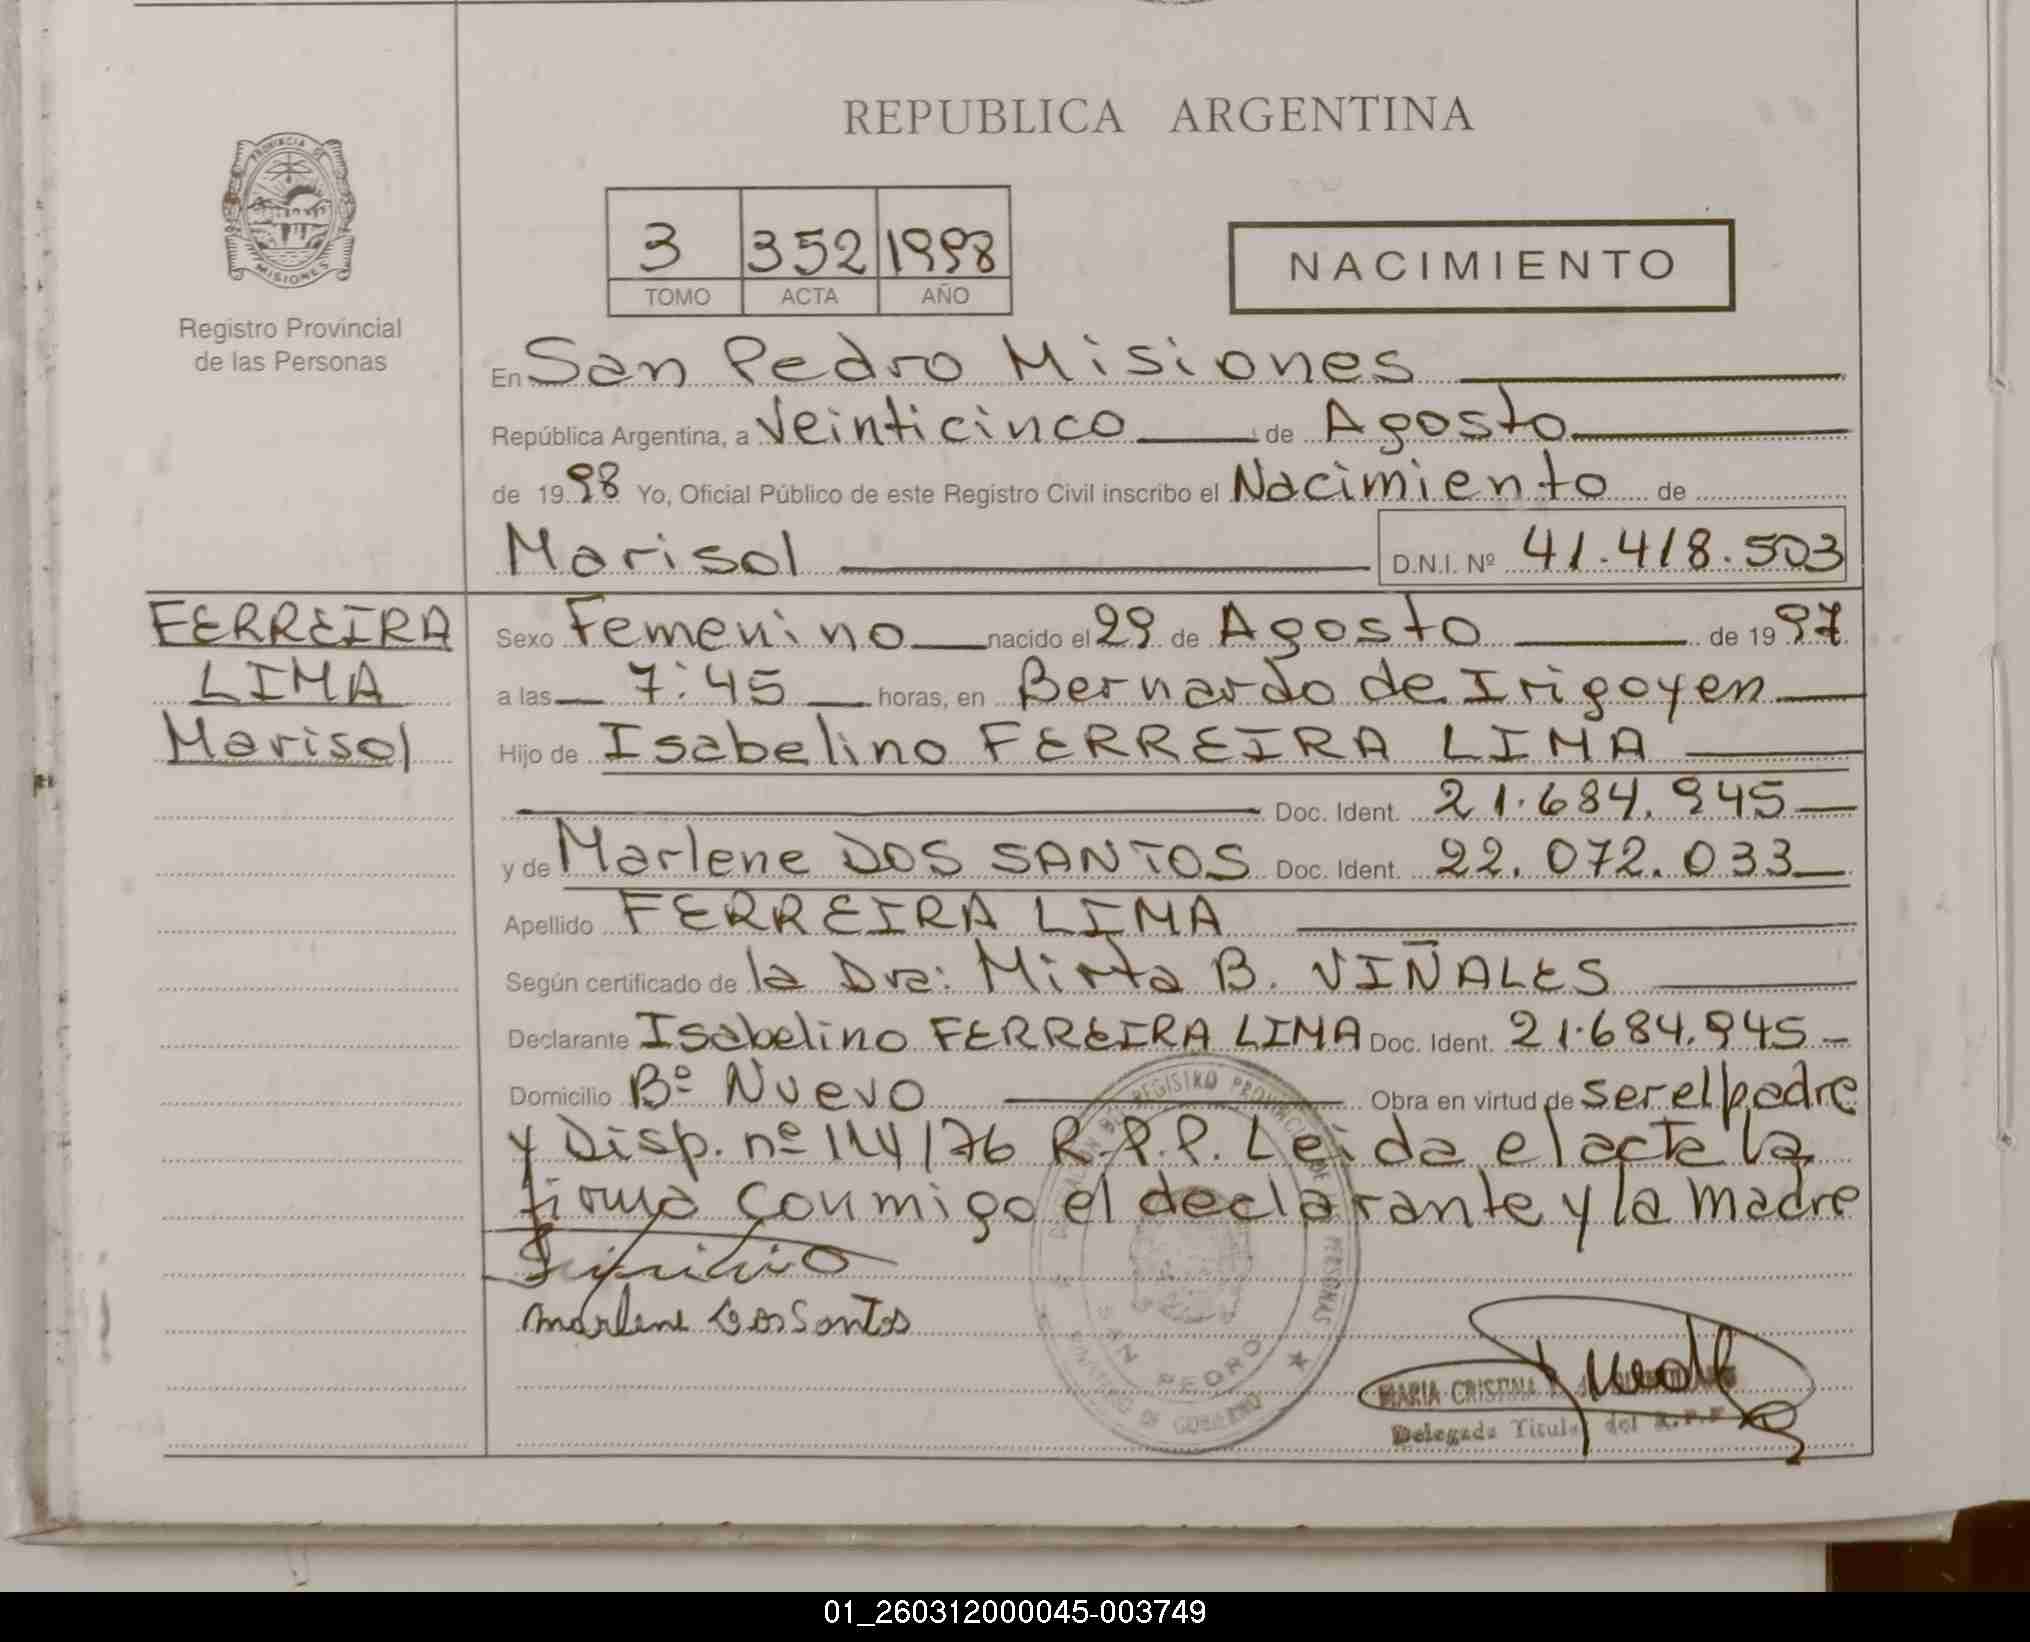 REPUBLICA ARGENTINA
PROVINCIA DE
MISIONES
Registro Provincial
de las Personas
3 352 1998
TOMO ACTA AÑO
NACIMIENTO
En San Pedro Misiones
República Argentina, a Veinticinco de Agosto
de 1998 Yo, Oficial Público de este Registro Civil inscribo el Nacimiento de
Marisol D.N.I. Nº 41.418.503
FERREIRA
LIMA
Marisol
Sexo Femenino nacido el 29 de Agosto de 1997
a las 7:45 horas, en Bernardo de Irigoyen
Hijo de Isabelino FERREIRA LIMA
Doc. Ident. 21.684.945
y de Marlene DOS SANTOS Doc. Ident. 22.072.033
Apellido FERREIRA LIMA
Según certificado de la Dra: Mirta B. VIÑALES
Declarante Isabelino FERREIRA LIMA Doc. Ident. 21.684.945
Domicilio Bº Nuevo Obra en virtud de ser el padre
y Disp. nº 114/76 R.P.P. Leida el acta la
firma conmigo el declarante y la madre
Marlene Dos Santos
REGISTRO PROVINCIAL DE PERSONAS
SAN PEDRO
DE GOBIERNO
MARIA CRISTINA
Delegada Titular del R.P.P
01_260312000045-003749